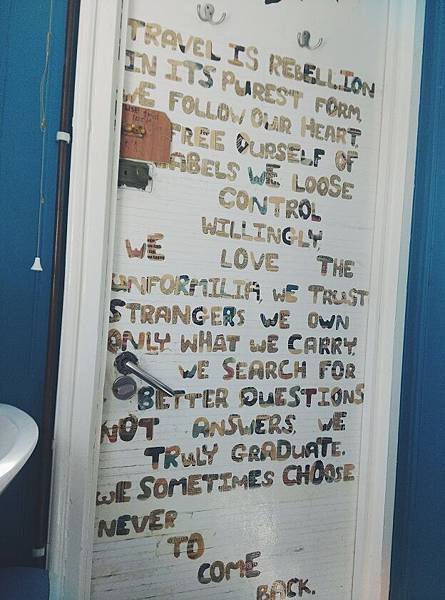 TRAVEL IS REBELLION
IN ITS PUREST FORM,
WE FOLLOW OUR HEART,
FREE OURSELF OF
LABELS WE LOOSE
CONTROL
WILLINGLY,
WE LOVE THE
UNFORMILIA, WE TRUST
STRANGERS WE OWN
ONLY WHAT WE CARRY,
WE SEARCH FOR
BETTER QUESTIONS
NOT ANSWERS. WE
TRULY GRADUATE.
WE SOMETIMES CHOOSE
NEVER
TO
COME
BACK.